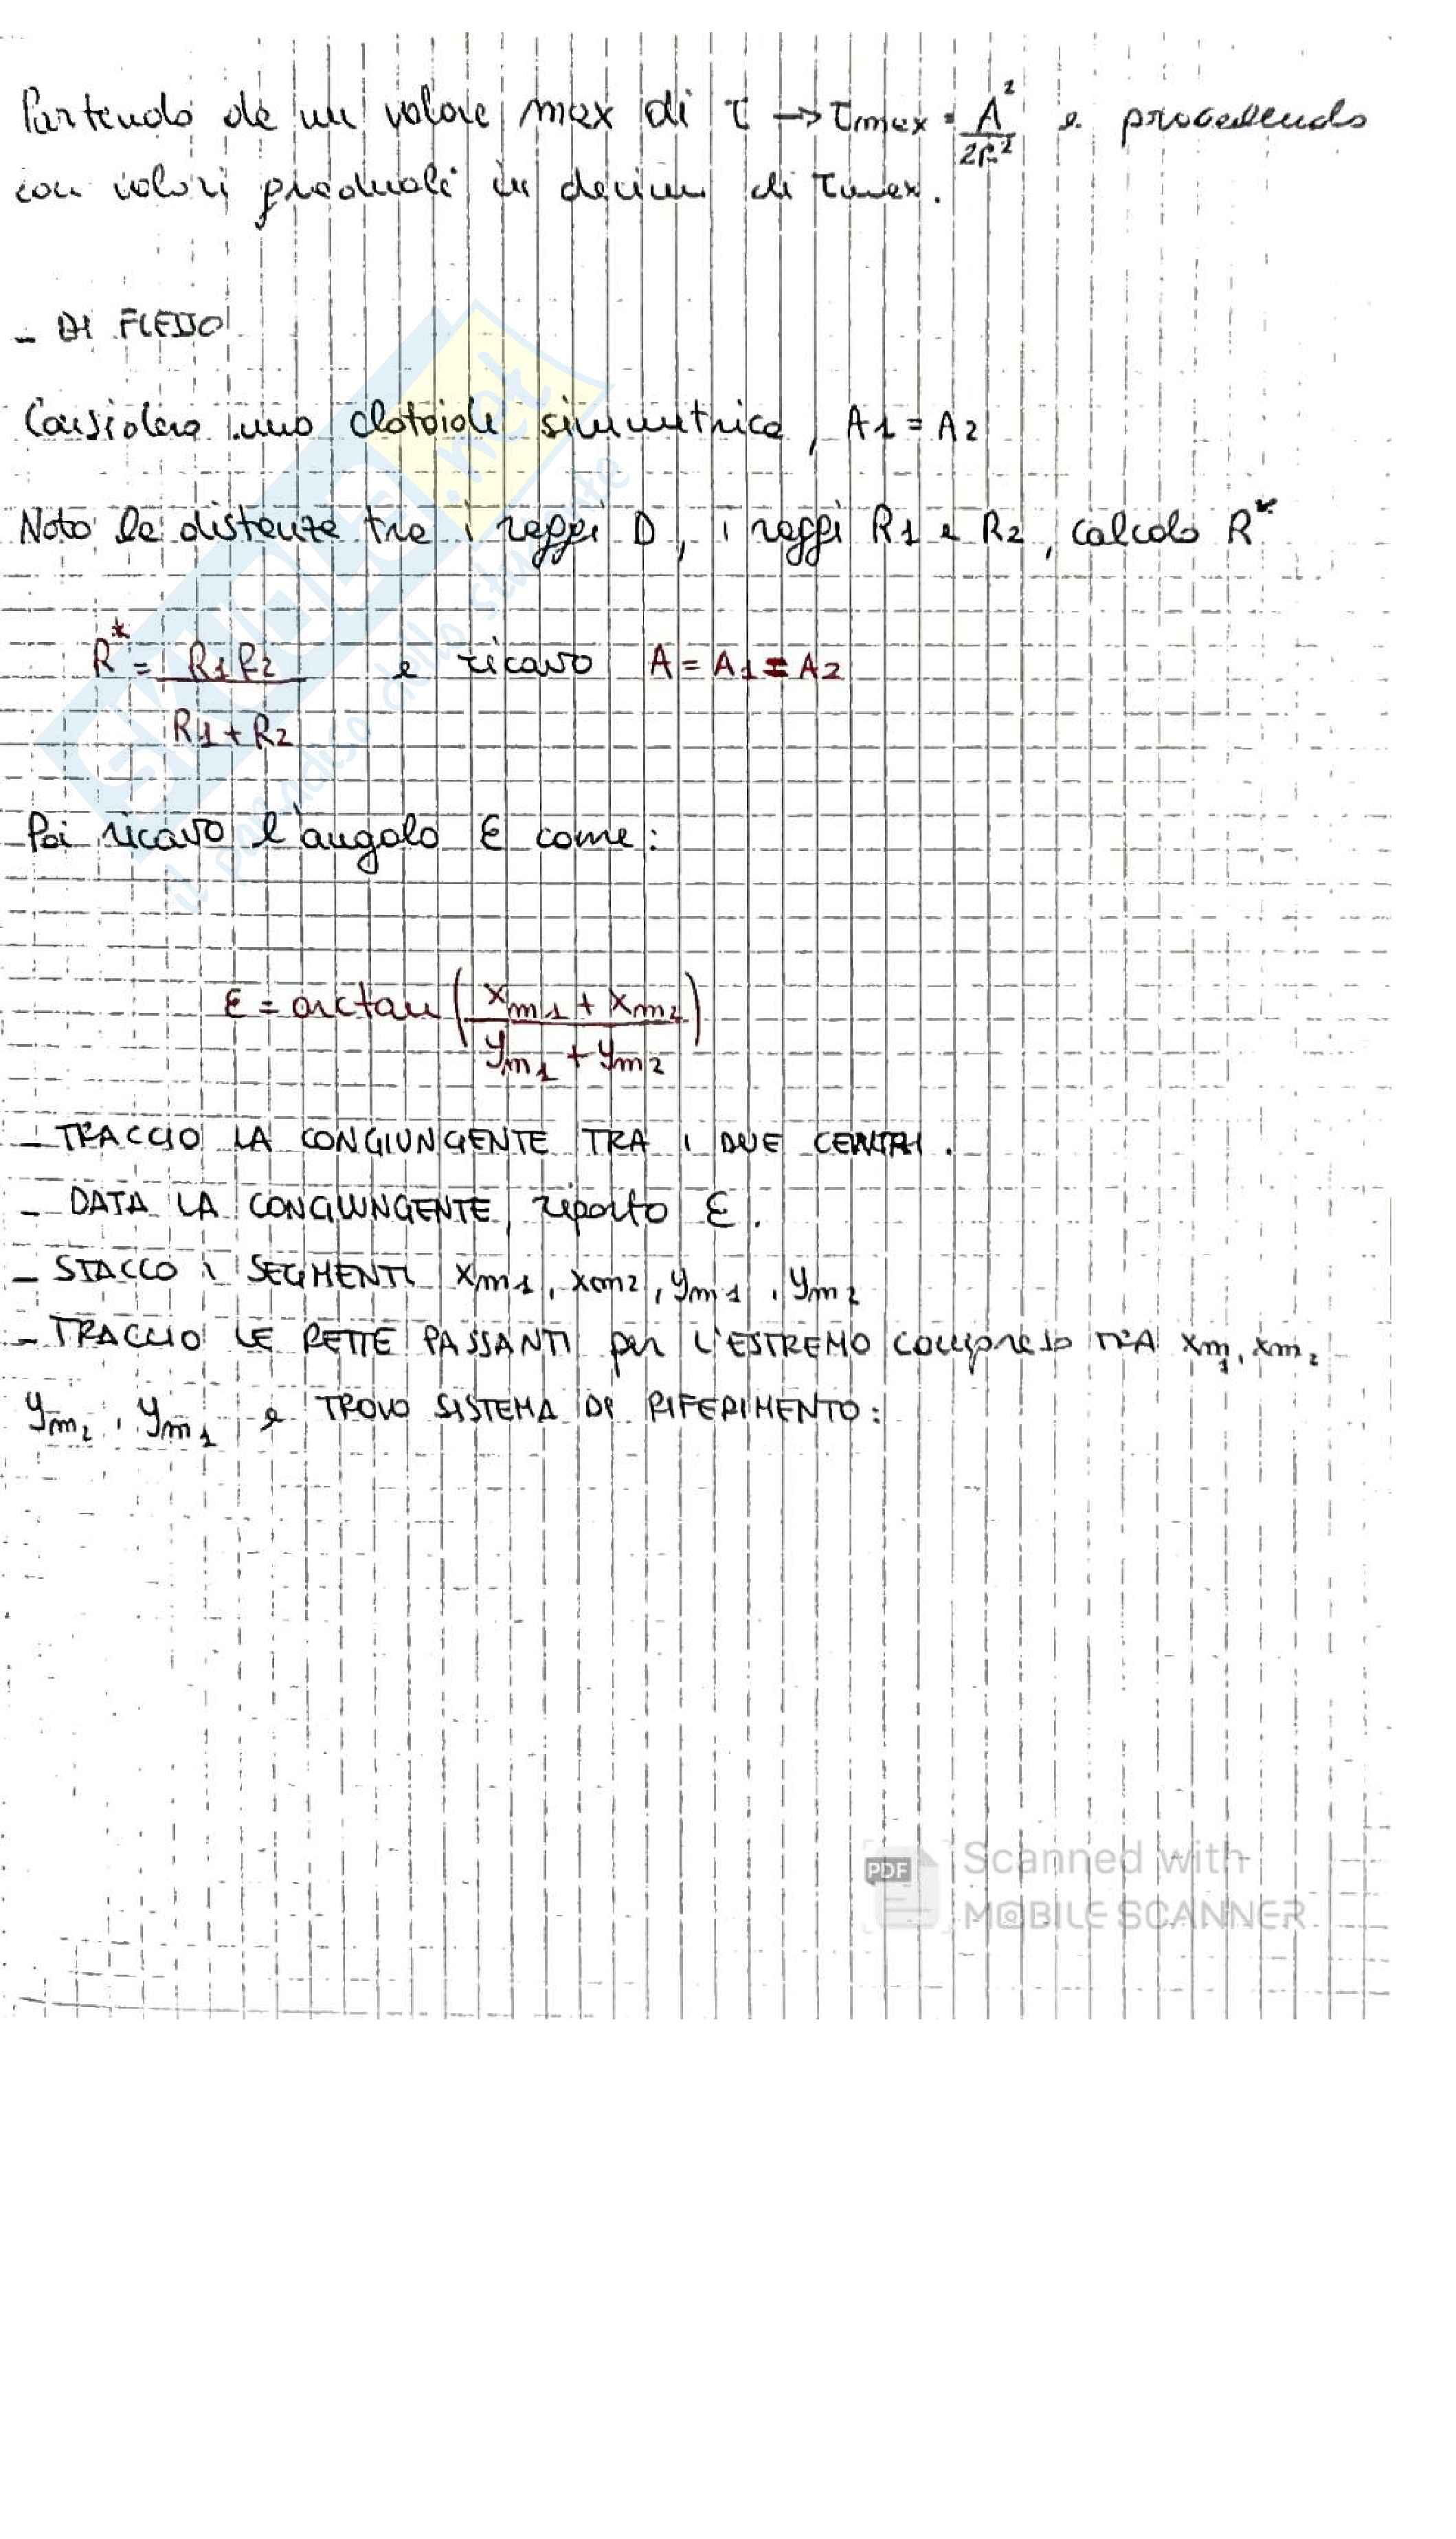 Partendo da un valore max di τ → τmax = A²/2R² e procedendo
con valori graduali in decimi di τmax.
- DI FLESSO
Considero una clotoide simmetrica, A1 = A2
Noto la distanza tra i raggi D, i raggi R1 e R2, calcolo R*
R* = R1R2 / R1+R2 e ricavo A = A1 = A2
Poi ricavo l'angolo ε come:
ε = arctan (xm1 + xm2 / ym1 + ym2)
- TRACCIO LA CONGIUNGENTE TRA I DUE CENTRI.
- DATA LA CONGIUNGENTE, riporto ε.
- STACCO I SEGMENTI xm1, xm2, ym1, ym2
- TRACCIO LE RETTE PASSANTI per L'ESTREMO compreso TRA xm1, xm2
ym2, ym1 e TROVO SISTEMA DI RIFERIMENTO:
SKUOLA.net
il paradiso dello studente
PDF
Scanned with
MOBILE SCANNER